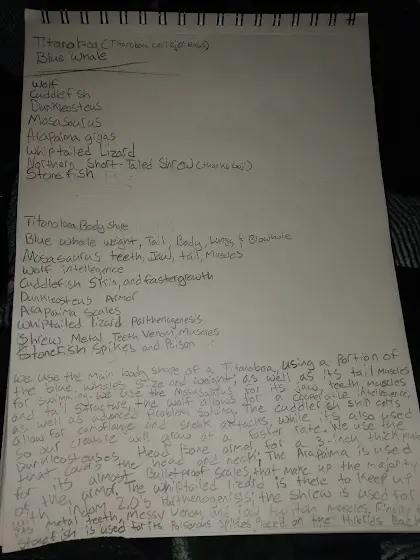 Titanoboa (Titanoboa cerrejonensis)
Blue Whale
Wolf
Cuddlefish
Dunkleosteus
Mosasaurus
Arapaima gigas
Whiptailed Lizard
Northern Short-Tailed Shrew (thanks
Stonefish
Titanoboa Body Shape
Blue whale weight, Tail, Body, Lungs, & Blowhole
Mosasaurus teeth, Jaw, tail, Muscles
Wolf intellegence
Cuddlefish Skin, and faster growth
Dunkleosteus Armor
Arapaima scales
Whiptailed lizard Parthenogenesis
Shrew Metal Teeth Venom, Muscles
Stonefish Spikes and Poison
We use the main body shape of a Titanoboa, using a portion of
the blue whales size and weight, as well as its tail muscles
for swimming. We use the Mosasaurus for its jaw, teeth, muscles
and tail structure, the wolf allows for a cooperative intellegence,
as well as advanced problem solving. The cuddlefish skin cells
allow for camoflauge and sneak attacks, while its also used
so our creature will grow at a faster rate. We use the
Dunkleosteuses Head bone armor for a 3-inch thick plate
that covers the head and neck. The Arapaima is used
for its almost Bulletproof scales, that make up the majority
of the armor. The whiptailed lizard is there to keep up
with Indom 2.0's the shrew is used for
its metal teeth, messy venom, and jaw muscles. Finally
Stonefish is used for its Poisonous Spikes Placed on the Hybrids back